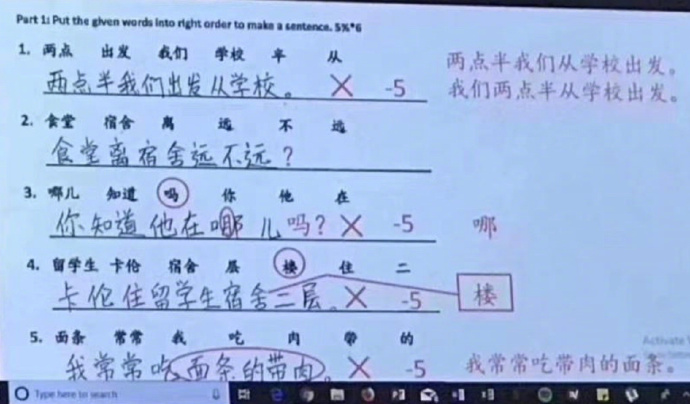 Part 1: Put the given words into right order to make a sentence. 5%*6
1. 两点 出发 我们 学校 半 从
两点半我们出发从学校。 × -5
两点半我们从学校出发。
我们两点半从学校出发。
2. 食堂 宿舍 离 远 不 远
食堂离宿舍远不远？
3. 哪儿 知道 吗 你 他 在
你知道他在哪儿吗？ × -5 哪
4. 留学生 卡伦 宿舍 层 楼 住 二
卡伦住留学生宿舍二层。 × -5 楼
5. 面条 常常 我 吃 肉 带 的
我常常吃面条的带肉。 × -5 我常常吃带肉的面条。
Activate
Type here to search